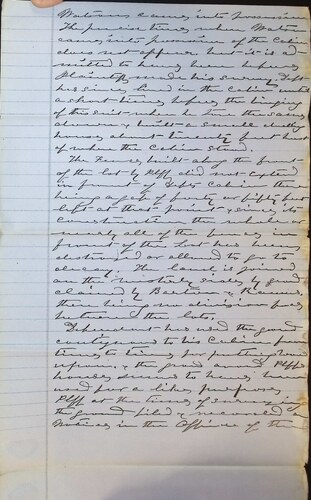 Watson came into possession
The precise time when Watson
came into possession of the Cabin
does not appear but it is ad-
mitted to have been before
Plaintiff made his survey. Deft
has since lived in the Cabin until
a short time before the bringing
of this suit when he tore the same
down & built a small dwelling
house about twenty feet west
of where the Cabin stood.
The Fence built along the front
of the lot by Plff did not extend
in front of Defts Cabin there
being a gap of forty or fifty feet
left at that point & since its
construction the whole or
nearly all of the fence in
front of the Lot has been
destroyed or allowed to go to
decay. The land is joined
on the westerly side by ground
claimed by &
there being no division fence
between the lots.
Defendant has used the ground
contiguous to his Cabin from
time to time for
upon & the ground around Plffs
house seems to have been
used for a like purpose.
Plff at the time of surveying
the ground filed & recorded
notices in the Office of the